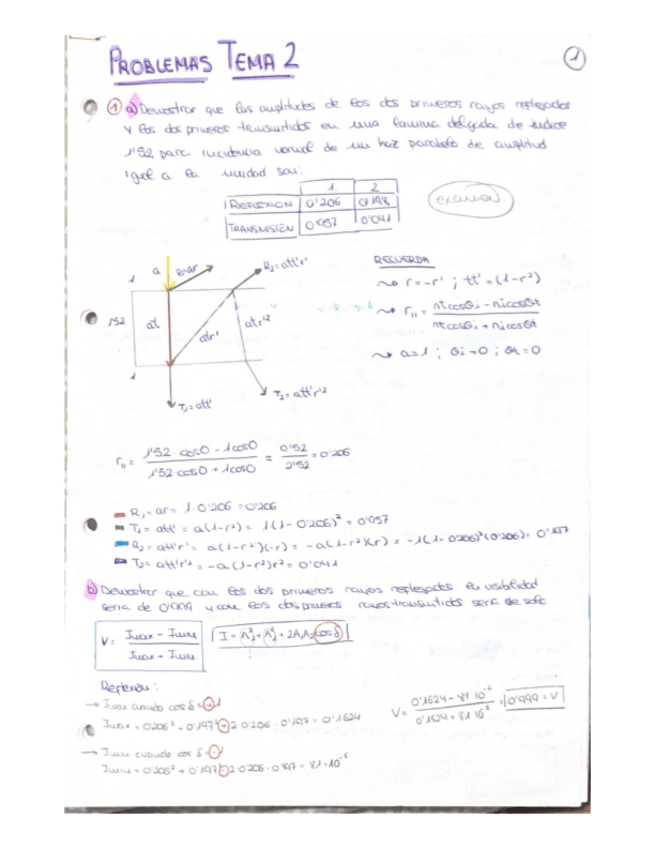 PROBLEMAS TEMA 2
1
1 a) Demostrar que las amplitudes de los dos primeros rayos reflejados
y los dos primeros transmitidos en una lámina delgada de índice
1'52 para incidencia normal de un haz paralelo de amplitud
igual a la unidad son:
1 2
REFLEXIÓN 0'206 0'198
TRANSMISIÓN 0'957 0'041
examen
RECUERDA
a R1=ar R2=att'r'
1
1'52 at atr' atr'2
1
T1=att' T2=att'r'2
r=-r' ; tt'=(1-r²)
r11 = ntcosθi - nicosθt / ntcosθi + nicosθt
a=1 ; θi=0 ; θt=0
r11 = 1'52 cos0 - 1cos0 / 1'52 cos0 + 1cos0 = 0'52 / 2'52 = 0'206
R1 = ar = 1·0'206 = 0'206
T1 = att' = a(1-r²) = 1(1-0'206)² = 0'957
R2 = att'r' = a(1-r²)(-r) = -a(1-r²)(r) = -1(1-0'206)²(0'206) = 0'197
T2 = att'r'² = -a(1-r²)r² = 0'041
b) Demostrar que con los dos primeros rayos reflejados la visibilidad
sería de 0'999 y con los dos primeros rayos transmitidos sería de
V = Imax - Imin / Imax + Imin
I = A1² + A2² + 2A1A2cosδ
Reflexión:
→ Imax cuando cos δ = +1
Imax = 0'206² + 0'197² + 2·0'206·0'197 = 0'1624
→ Imin cuando cos δ = -1
Imin = 0'206² + 0'197² - 2·0'206·0'197 = 81·10⁻⁶
V = 0'1624 - 81·10⁻⁶ / 0'1624 + 81·10⁻⁶ = 0'999 = V